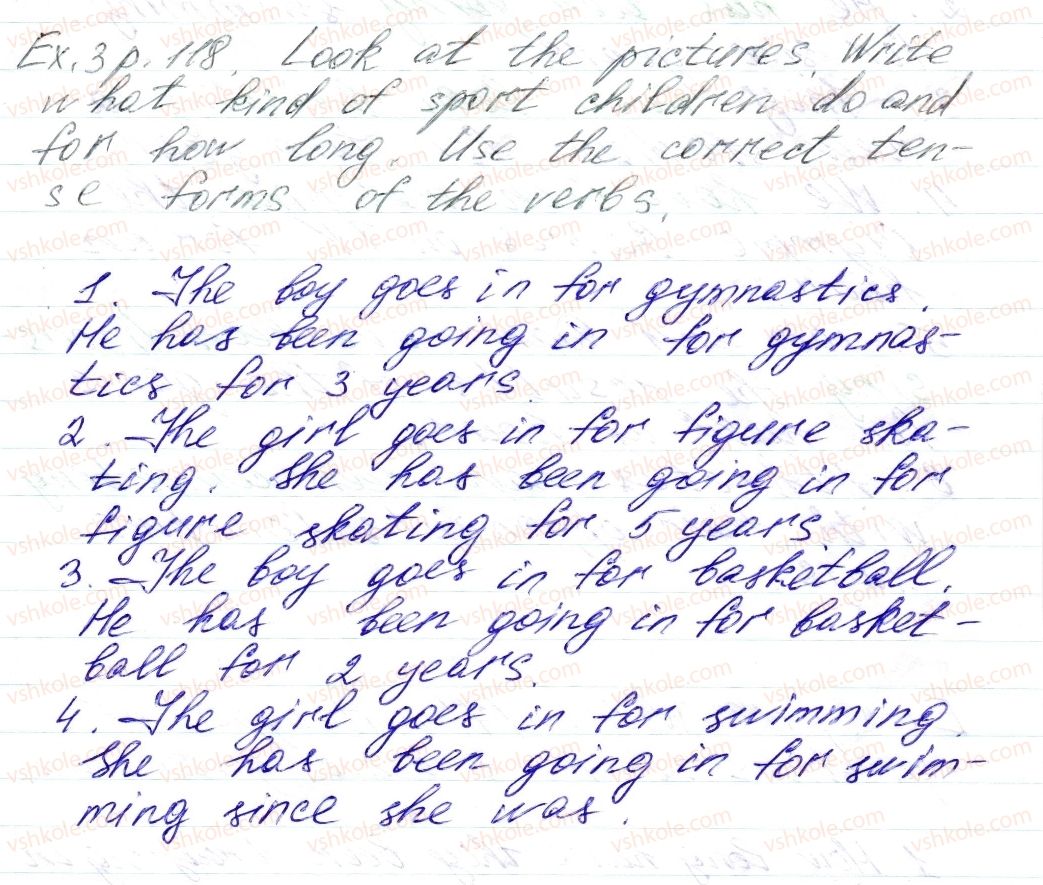 Ex. 3 p. 118. Look at the pictures. Write
what kind of sport children do and
for how long. Use the correct ten-
se forms of the verbs.
1. The boy goes in for gymnastics.
He has been going in for gymnas-
tics for 3 years.
2. The girl goes in for figure ska-
ting. She has been going in for
figure skating for 5 years.
3. The boy goes in for basketball.
He has been going in for basket-
ball for 2 years.
4. The girl goes in for swimming.
She has been going in for swim-
ming since she was.
vshkole.com